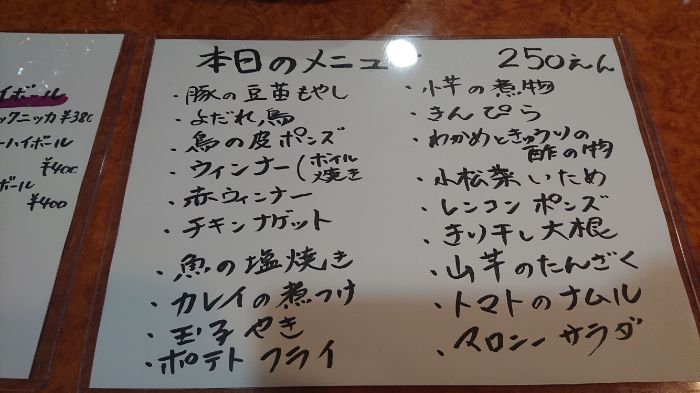 イボール
ックニッカ ¥380
ーハイボール
¥400
ボール
¥400
本日のメニュー 250えん
・豚の豆苗もやし
・よだれ鳥
・鳥の皮ポンズ
・ウィンナー(ボイル
焼き
・赤ウィンナー
・チキンナゲット
・魚の塩焼き
・カレイの煮つけ
・玉子やき
・ポテトフライ
・小芋の煮物
・きんぴら
・わかめときゅうりの
酢の物
・小松菜いため
・レンコンポンズ
・きり干し大根
・山芋のたんざく
・トマトのナムル
・マロニーサラダ